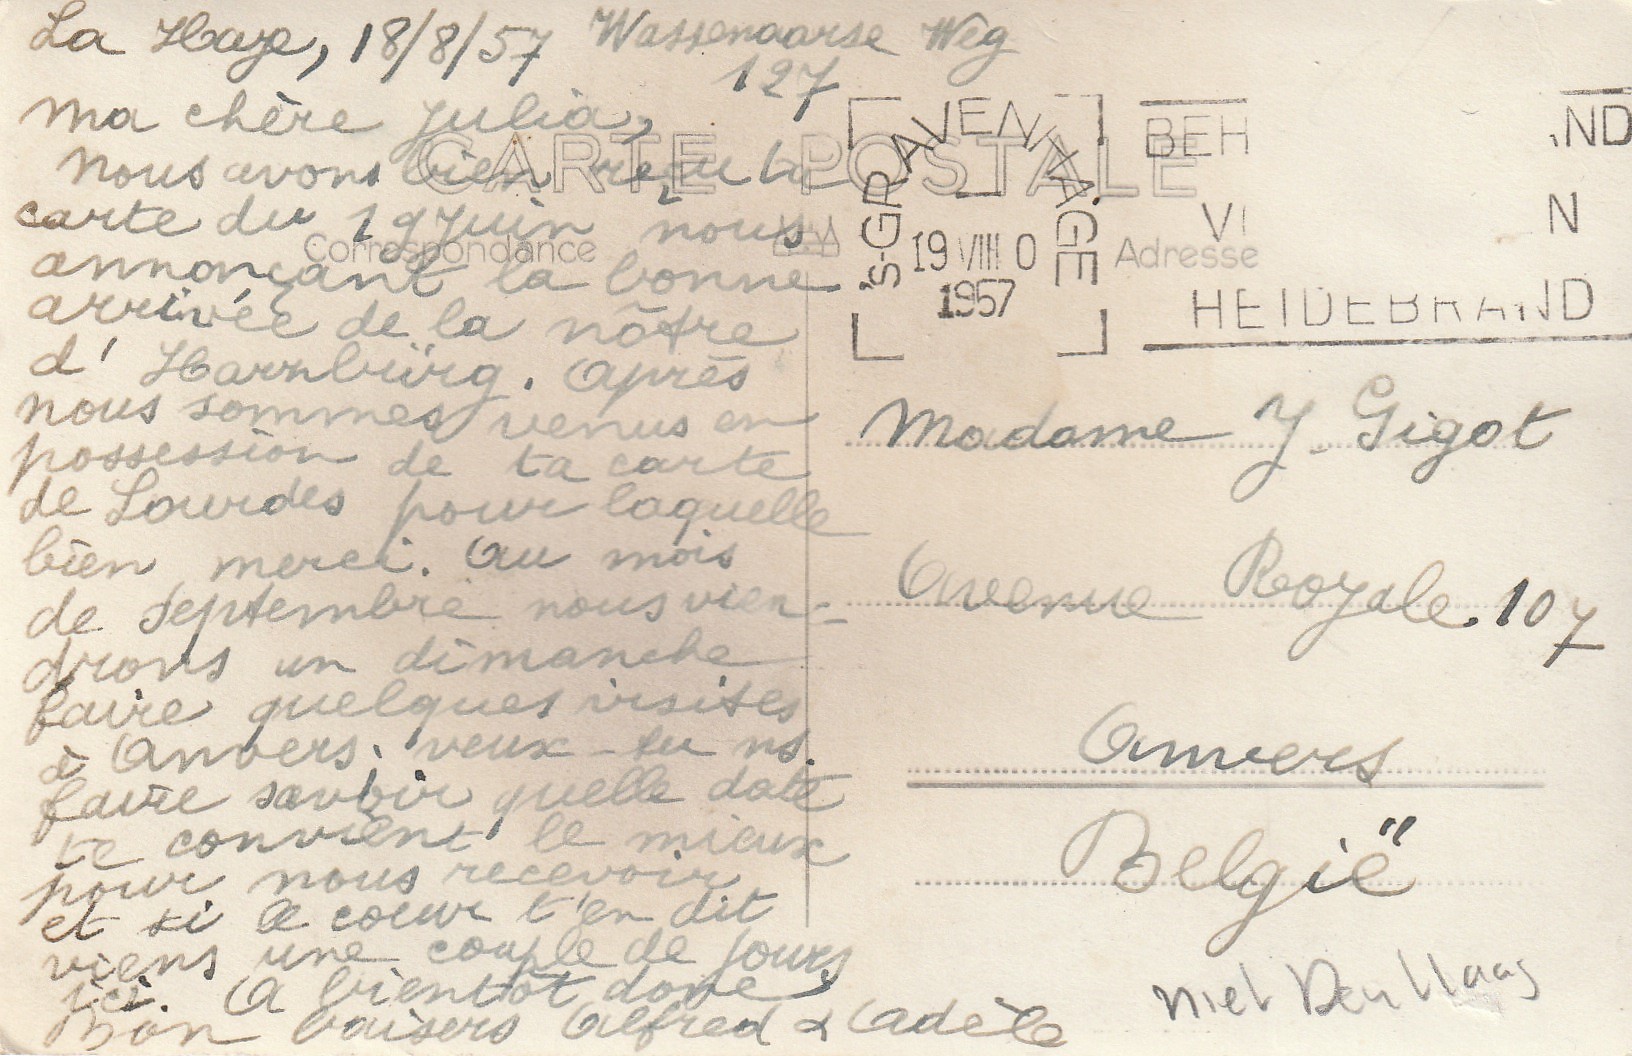 La Haye, 18/8/57 Wassenaarse Weg
127
Ma chère Julia,
Nous avons bien reçu ta
carte du 19 Juin nous
annonçant la bonne
arrivée de la nôtre
d'Harzbürg. Après
nous sommes venus en
possession de ta carte
de Lourdes pour laquelle
bien merci. Au mois
de Septembre nous vien-
drons un dimanche
faire quelques visites
à Anvers. veux-tu ns.
faire savoir quelle date
te convient le mieux
pour nous recevoir
et si le coeur t'en dit
viens une couple de jours
ici. A bientôt donc,
Bon baisers Alfred & Adèle
CARTE POSTALE
Correspondance
Adresse
'S-GRAVENHAGE
19 VIII 0
1957
BEH ND
VI N
HEIDEBRAND
Madame J. Gigot
Avenue Royale. 107
Anvers
België
niet Den Haag